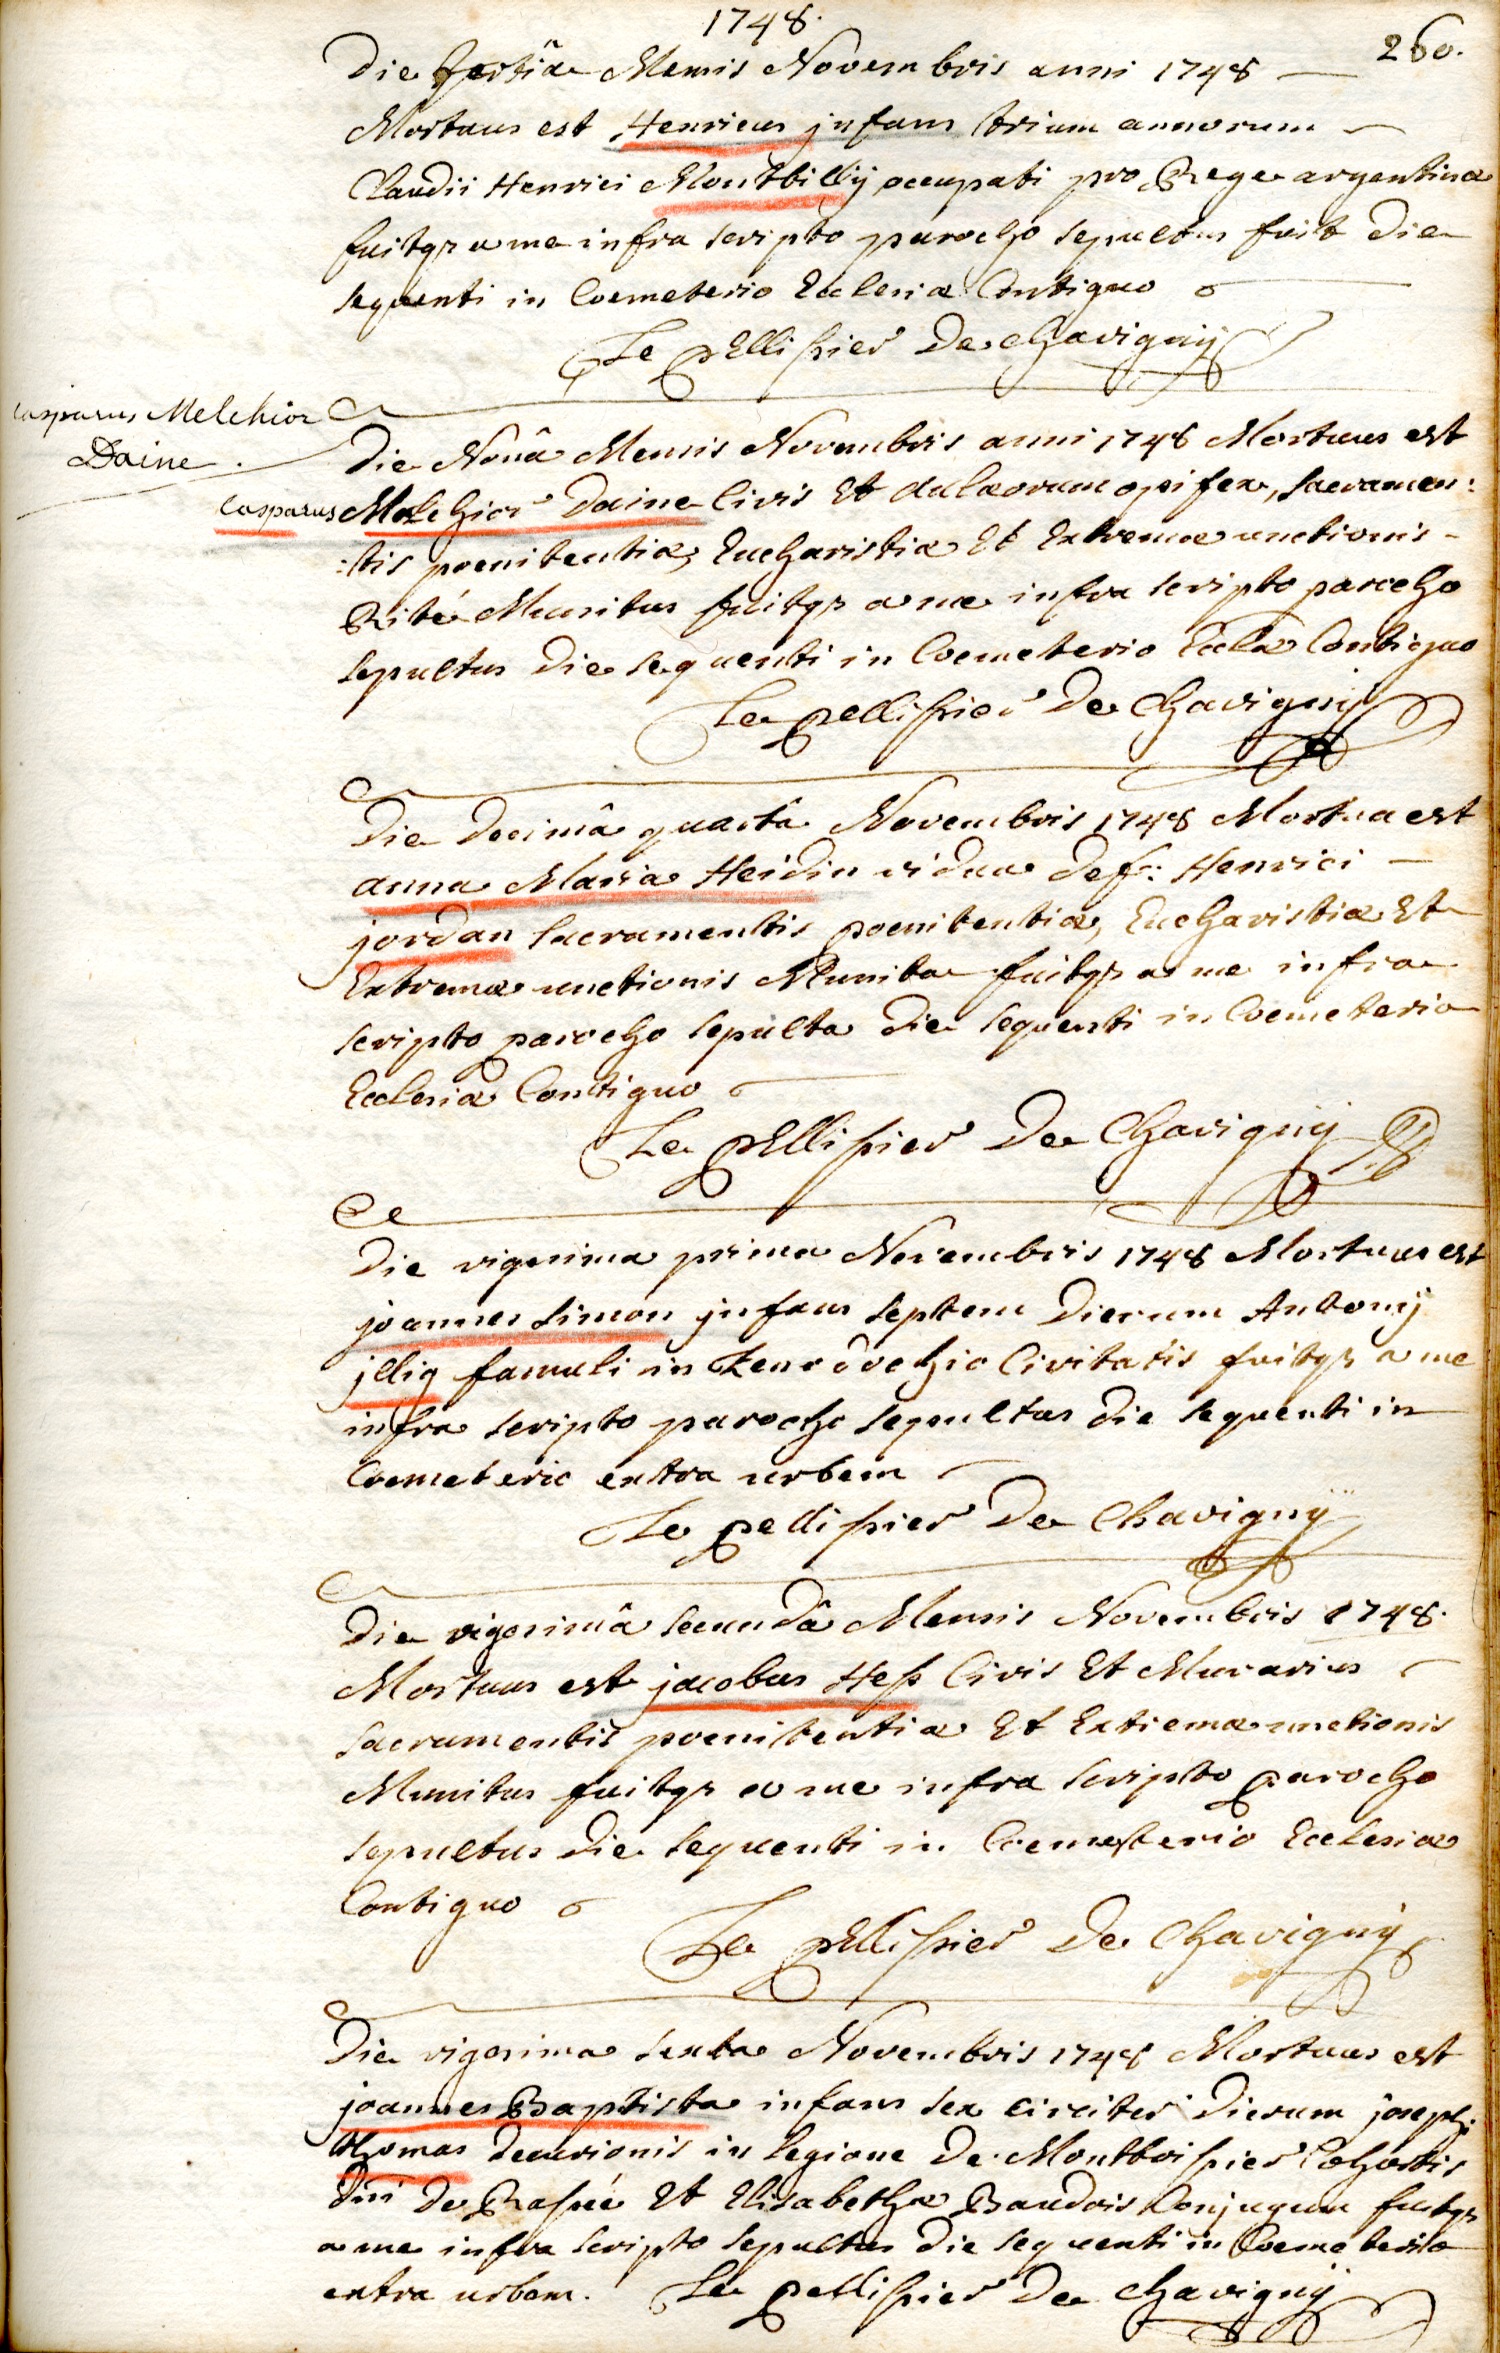 1748.
260.
Die tertiâ Mensis Novembris anni 1748
Mortuus est Henricus jnfans trium annorum
Claudii Henrici Montbillÿ occupati pro Rege argentinæ
fuitqz a me infra scripto parocho sepultus fuit die
sequenti in Coemeterio Ecclesiæ Contiguo
Le pEllissier De chavignÿ
Casparus Melchior
Daine.
Die Nonâ Mensis Novembris anni 1748 Mortuus est
Casparus Melchior Daine Civis Et aulæorum opifex, sacramen:
:tis poenitentiæ, Eucharistiæ Et Extremæ unctionis -
Rité Munitus fuitqz a me infra scripto parocho
sepultus die sequenti in Coemeterio Eccla Contiguo
Le pellissier De Chavignÿ
Die Decimâ quartâ Novembris 1748 Mortua est
anna Maria Heidin vidua def: Henrici
jordan sacramentis poenitentiæ, Eucharistiæ Et
Extremæ unctionis Munita fuitqz a me infra
scripto parocho sepulta die sequenti in Coemeterio
Ecclesiæ Contiguo
Le pEllissier De Chavignÿ
Die vigesima prima Novembris 1748 Mortuus est
joannes simon jnfans septem Dierum Antonÿ
jllig famuli in Xenodochio Civitatis fuitqz a me
infra scripto parocho sepultus die sequenti in
Coemeterio extra urbem
Le pellissier De Chavignÿ
Die vigesimâ secundâ Mensis Novembris 1748.
Mortuus est jacobus Heß Civis Et Murarius
sacramentis poenitentiæ Et Extremæ unctionis
Munitus fuitqz a me infra scripto parocho
sepultus die sequenti in Coemeterio Ecclesiæ
Contiguo
Le pEllissier De Chavignÿ
Die vigesima sexta Novembris 1748 Mortuus est
joannes Baptista infans sex circiter Dierum josephi
thomas decurionis in legione De Montboissier Cohortis
Dni De Et Elisabethæ Baudois Conjugum fuitqz
a me infra scripto sepultus die sequenti in Coemeterio
extra urbem. Le pellissier De chavignÿ